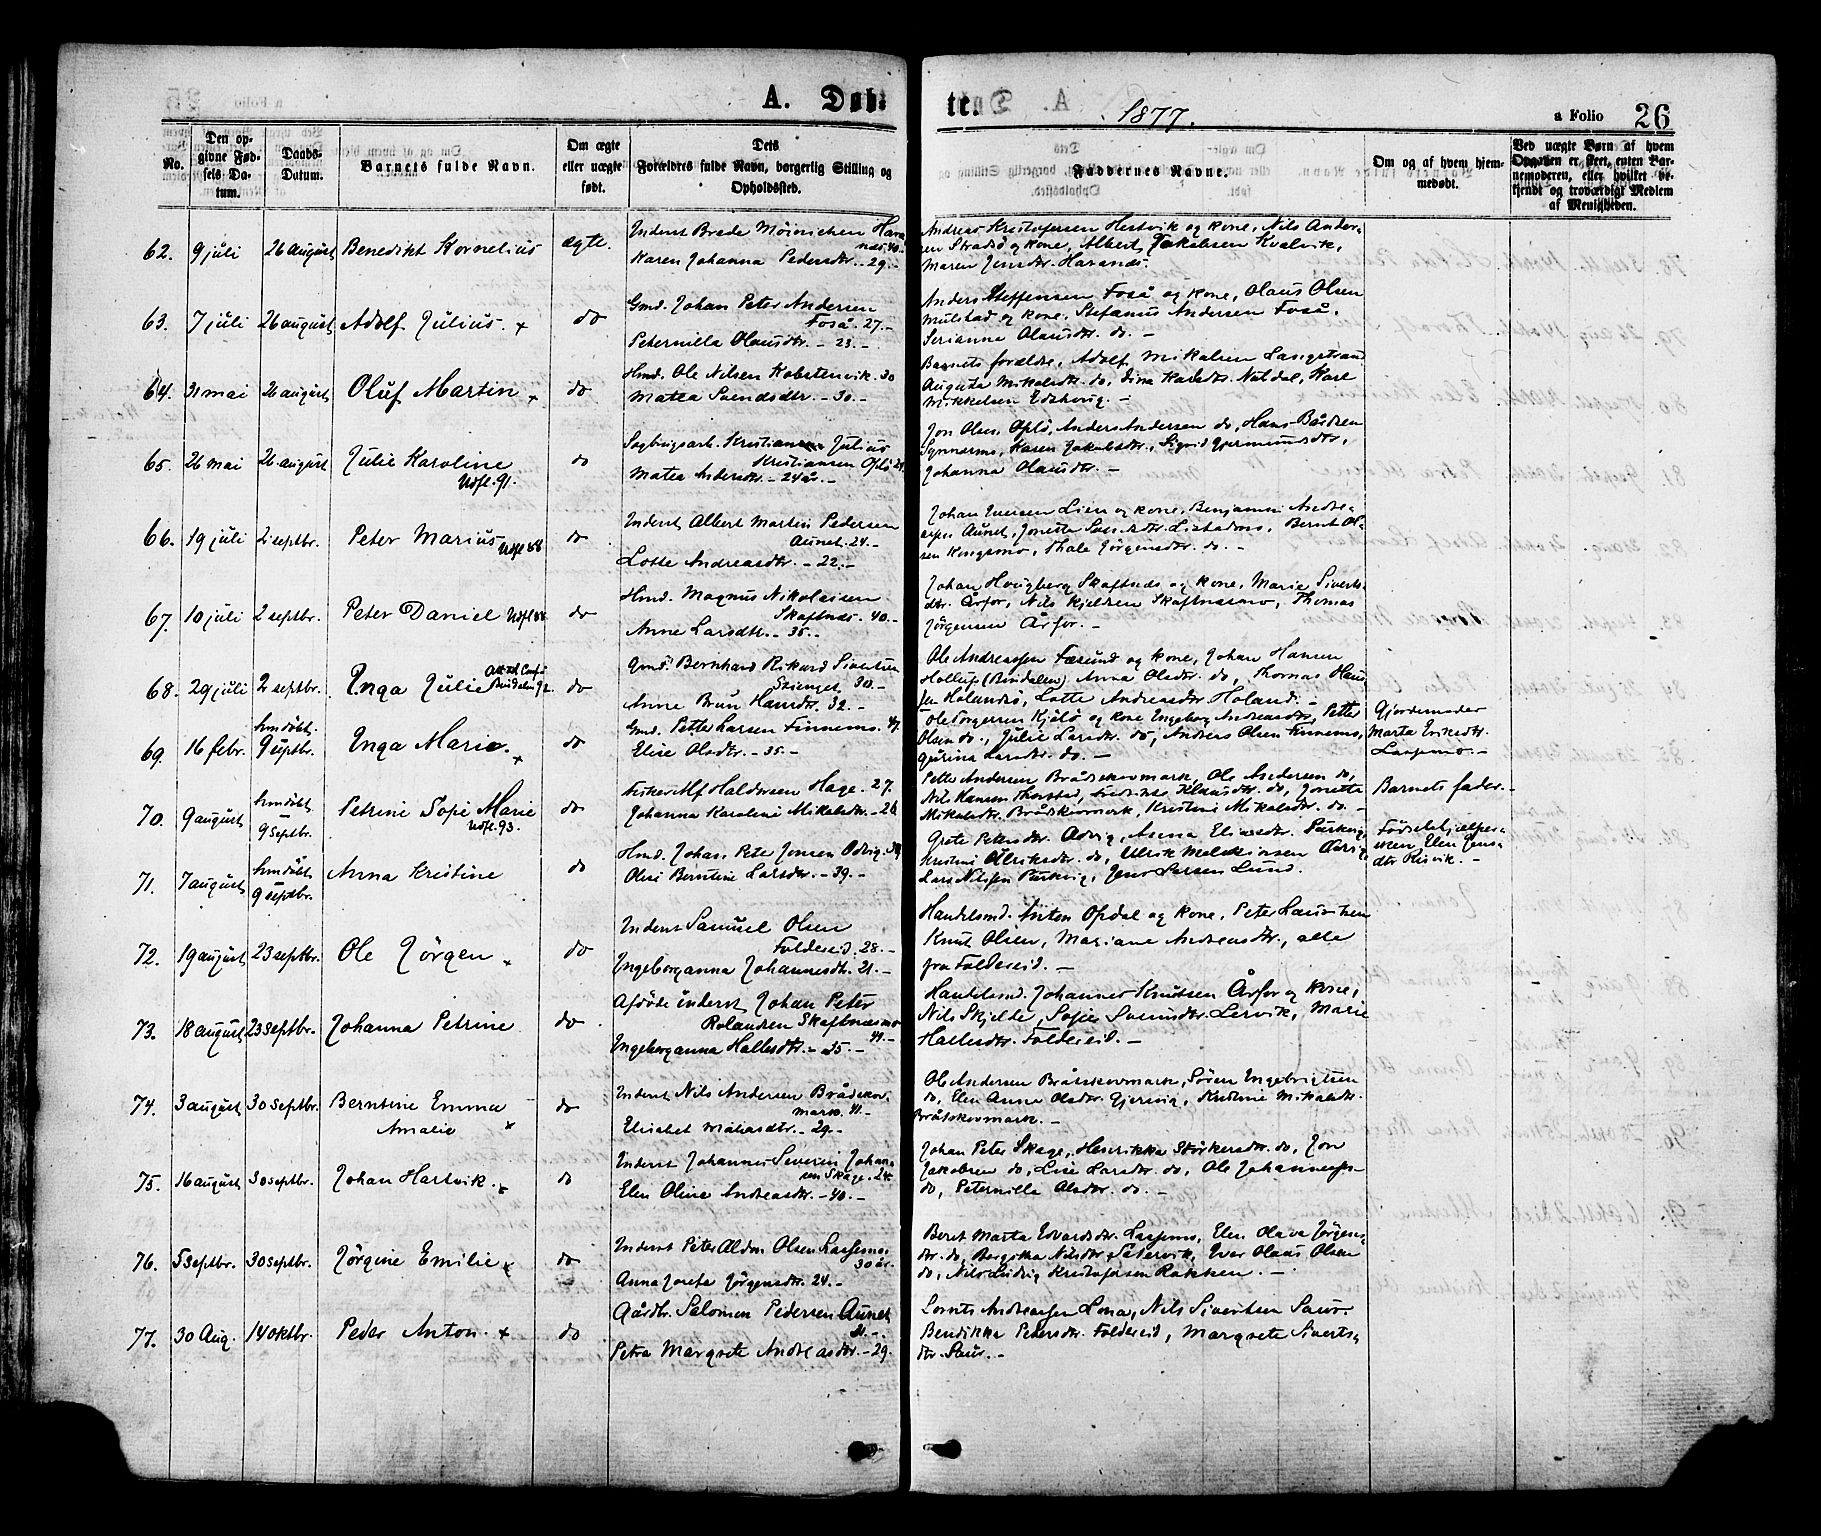 A. Døb-
te.
1877.
a Folio 26
No.
Den op-
givne Fød-
sels Da-
tum.
Daabs-
Datum.
Barnets fulde Navn.
Om ægte
eller uægte
født.
Dets
Forældres fulde Navn, borgerlig Stilling og
Opholdssted.
Faddernes Navne.
Om og af hvem hjem-
medøbt.
Ved uægte Børn af hvem
Opgaven er skeet, enten Bar-
nemoderen, eller hvilket be-
kjendt og troværdigt Medlem
af Menigheden.
62. 9 juli 26 august Benedikt Kornelius ægte.
Inderst Brede Möinichen Hara
næs. 40.-
Karen Johanna Pedersdtr. 29.-
Andreas Kristofersen Hestvik og kone, Nils Ander-
sen Stradsö og kone, Albert Jakobsen Kvalvik,
Maren Jensdtr. Haranæs.
63. 7 juli 26 august Adolf Julius. x do
Gmd. Johan Peter Andersen
Foså. 27.-
Petermilla Olausdtr. - 23.-
Anders Steffensen Foså og kone, Olaus Olsen
Mulstad og kone, Stefanus Andersen Foså.
Serianna Olausdtr. do. -
64. 31 mai 26 august Oluf Martin x do
Hmd. Ole Nilsen Kobstenvik. 30
Matea Svendsdtr. - 30.-
Barnets forældre, Adolf Mikalsen Langstrand
Augusta Mikalsdtr. do, Dina Karlsdtr. Naldal, Karl
Mikkelsen Edshoug. -
65. 26 mai 26 august Julie Karoline do
Udfl. 91.
Sagbrugsarb. Kristian Julius
Kristiansen Oplö 24
Matea Andersdtr. - 24 år. -
Jon Olsen Oplö, Anders Andersen do, Hans Bårdsen
Synnæsmo, Karen Jakobsdtr., Sigrid Gjermundsdtr,
Johanna Olausdtr. -
66. 19 juli 2 septbr. Peter Marius Udfl 88 do
Inderst Albert Martin Pedersen
Aunet. 24.-
Lotte Andreasdtr. - 22.-
Johan Iversen Lien og kone, Benjamin Andre-
Aunet, Jonetta Bernt Ol-
sen Kongsmo, Thale Jörgensdtr. do. -
67. 10 juli 2 septbr. Peter Daniel Udfl 88 do
Hmd. Magnus Nikolaisen
Skaftnæs. 40.-
Anne Larsdtr. - 35.-
Johan Hougberg Skaftnæs og kone, Marie Siverts-
dtr. Årfor, Nils Kjeldsen Skaftnæsmo, Thomas
Jörgensen Årfor. -
68. 29 juli 2 septbr. Inga Julie do
Bindalen 92
Gmd. Bernhard Rikard Sivertsen
30.-
Anne Brun Hansdtr. 32. -
Ole Andreassen Fæsund og kone, Johan Hansen
Hollup (Bindalen) Anna Olsdtr. do, Thomas Han-
sen Lotte Andreasdtr. Holand. -
69. 16 febr. hmdöbt. 9 septbr. Inga Marie. x do
Gmd. Petter Larsen Finnemo. 41
Elise Olsdtr. - 35.-
Ole Torgersen Kjelö og kone Ingeborg Andreasdtr, Petter
Olsen do., Julie Larsdtr. do, Anders Olsen Finnemo,
Gurina Larsdtr. do. -
Gjordemoder
Marta Eriksdtr.
Lassemo. -
70. 9 august hmdöbt 9 septbr. Petrine Sofie Marie do
Udfl. 93.
Fisker Alf Haldorsen Hage. 27.
Johanna Karoline Mikalsdtr. - 26
Petter Andersen Bråtskovmark, Ole Andersen do,
Nils Hansen Thorstad, Fredrikke Klausdtr. do, Jonetta
Mikalsdtr. Bråtskovmark, Kristine Mikalsdtr. do. -
Barnets fader. -
71. 7 august hmdöbt 9 septbr. Anna Kristine do
Hmd. Johan Peter Jonsen Odvig. 39
Oline Berntine Larsdtr. - 39. -
Grete Petersdtr. Odvig, Anna Eliasdtr. Purkvig,
Kristine Ulriksdtr. do, Ulrik Melchiorsen Odvig,
Lars Nilssen Purkvig, Jens Larsen Lund.
Födselshjælper-
sken Elen Jens-
dtr Risvik. -
72. 19 august 23 septbr. Ole Jörgen x do
Inderst Samuel Olsen
Foldereid. 28.-
Ingeborganna Johannesdtr. 21.-
Handelsmd. Anton Opdal og kone, Peter Lauritsen
Knut Olsen, Mariane Andreasdtr., alle
fra Foldereid. -
73. 18 august 23 septbr. Johanna Petrine do
Afdöde inderst Johan Peter
Rolandsen Skaftnæsmo
41.-
Ingeborganna Hallesdtr. - 35.-
Handelsmd. Johannes Knutsen Årfor og kone,
Nils Skjelde, Sofie Lervik, Marie
Hallesdtr. Foldereid. -
74. 3 august 30 septbr. Berntine Emma
Amalie x do
Inderst Nils Andersen Bråtskov
mark. 41.-
Elisabet Matiasdtr. - 29.-
Ole Andersen Bråtskovmark, Sören Ingebrigtsen
do, Elen Anna Olsdtr. Gjersvig, Kristine Mikalsdtr.
Bråtskovmark. -
75. 16 august 30 septbr. Johan Hartvik. x do
Inderst Johannes Severin Johan-
sen Skage. 24.
Elen Oline Andreasdtr. - 40. -
Johan Peter Skage, Henrikka Störkersdtr. do, Jon
Jakobsen do, Lise Larsdtr. do, Ole Johannessen
do, Petermilla Olsdtr. do. -
76. 5 septbr. 30 septbr. Jörgine Emilie x do
Inderst Peter Aldon Olsen Lassemo.
30 år.
Anna Josefa Jörgensdtr. 24. -
Beret Marta Edvardsdtr. Lassemo, Elen Olava Jörgens-
dtr. do, Bergitta Nilsdtr. Sætervik, Iver Olaus Olsen
do, Nils Ludvig Kristofersen Rakken. -
77. 30 Aug. 14 oktbr. Peder Anton. x do
Gårdbr. Salomon Pedersen Aunet
31.-
Petra Margrete Andreasdtr. - 29.
Lornts Andreassen Lona, Nils Sivertsen Saur.
Bendikka Petersdtr. Foldereid, Margrete Siverts-
dtr. Saur. -